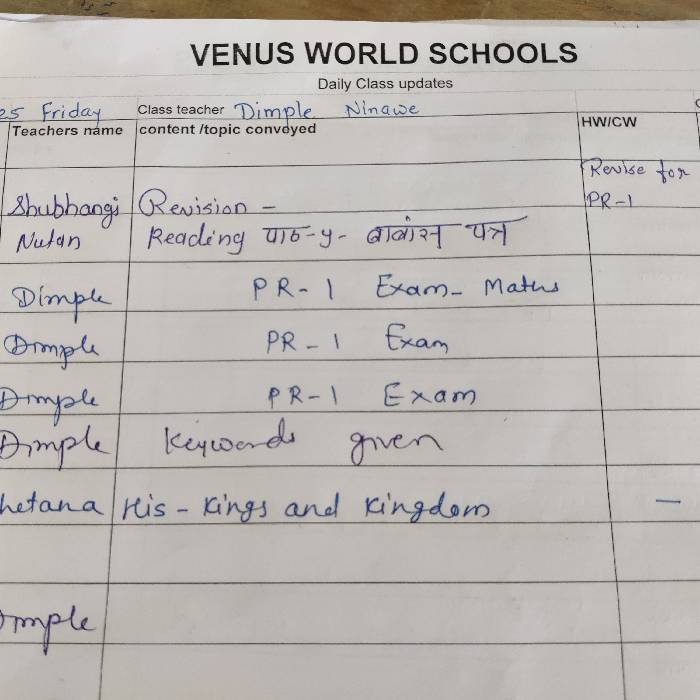 VENUS WORLD SCHOOLS
Daily Class updates
25 Friday Class teacher Dimple Ninawe
Teachers name content /topic conveyed HW/CW
Revise for
Shubhangi Revision - PR-1
Nutan Reading पाठ-५-
Dimple PR-1 Exam- Maths
Dimple PR-1 Exam
Dimple PR-1 Exam
Dimple Keywords given
hetana His - Kings and Kingdom -
mple